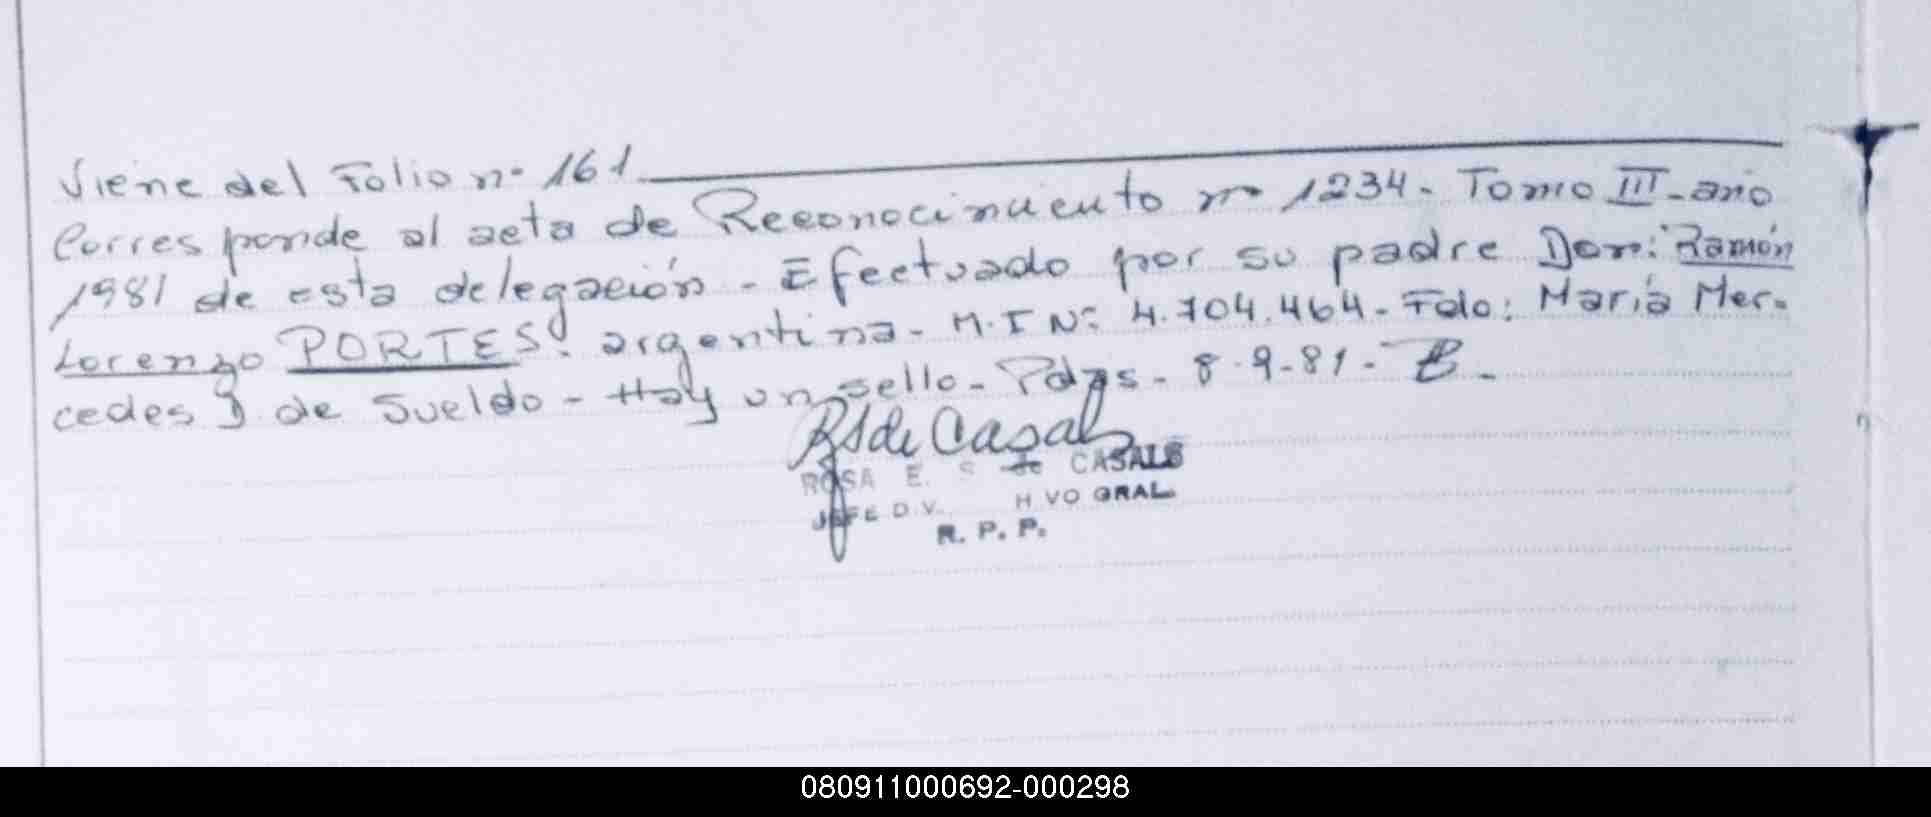 Viene del Folio nº 161
Corresponde al acta de Reconocimiento nº 1234- Tomo III-año
1981 de esta delegación - Efectuado por su padre Don: Ramón
Lorenzo PORTES. argentina- M.I Nº: 4.704.464- Fdo: María Mer-
cedes J. de Sueldo - Hay un sello- Pdas- 8-9-81-
RS de Casals
ROSA E. S de CASALS
JEFE DIV. H VO GRAL
R. P. P.
080911000692-000298